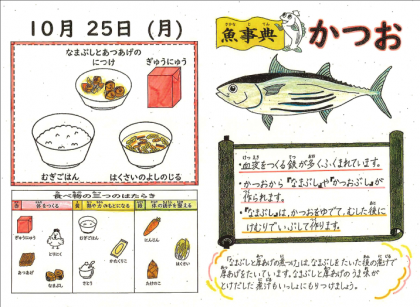 10月 25日 (月)
なまぶしとあつあげの
につけ
ぎゅうにゅう
むぎごはん
はくさいのよしのじる
食べ物の三つのはたらき
赤
体をつくる
黄
緑
体の調子を整える
ぎゅうにゅう
とりにく
あつあげ
なまぶし
むぎごはん
かたくりこ
さとう
にんじん
はくさい
たけのこ
魚事典
さかな じてん
かつお
・血液をつくる鉄が多くふくまれています。
・かつおから『なまぶし』や『かつおぶし』が
作られます。
・『なまぶし』は、かつおをゆでて、むした後に
けむりでいぶして作ります。
「なまぶしと厚あげの煮つけ」は、なまぶしをたいた後の煮汁で
厚あげをたいています。なまぶしと厚あげのうま味が
とけだした煮汁もいっしょにもりつけましょう。